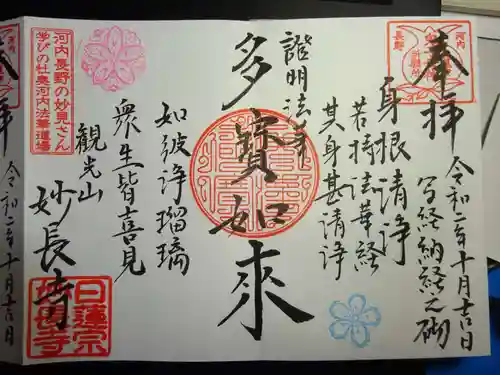 奉拝
令和二年十月吉日
写経納経之砌
河内
長野
身根清浄
若持法華経
其身甚清浄
證明法華
多寳如来
如彼浄瑠璃
衆生皆喜見
観光山
妙長寺
河内長野の妙見さん
学びの社奥河内法華道場
日蓮宗
奉拝
令和二年十月吉日